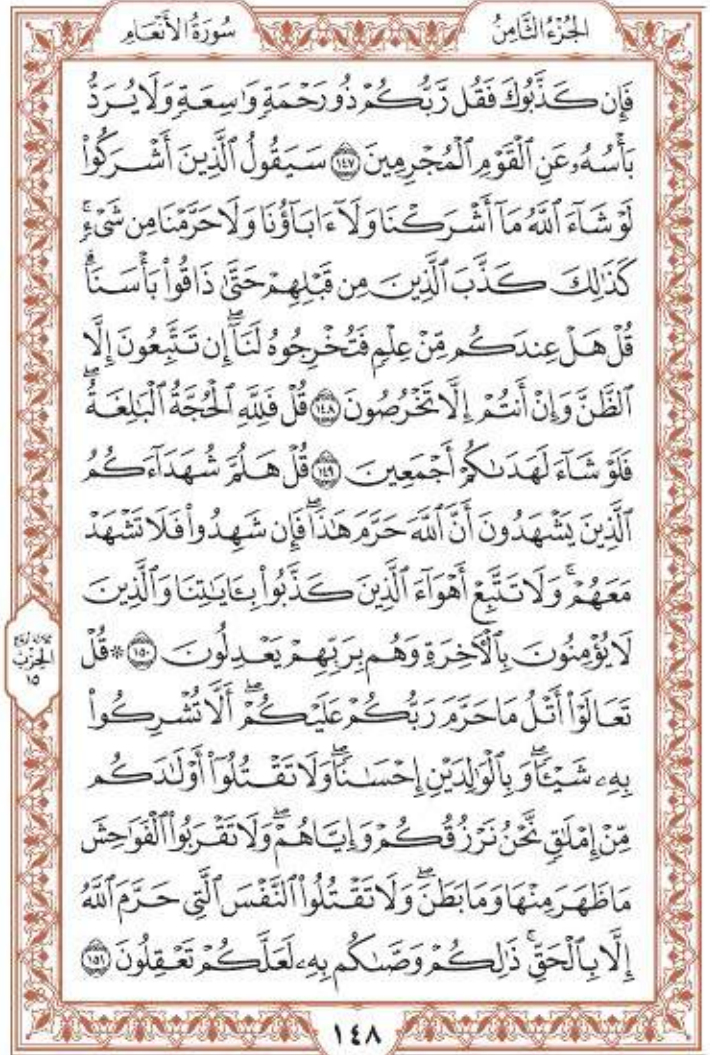 الجُزْءُ الثَّامِنُ
سُورَةُ الأَنْعَامِ
فَإِن كَذَّبُوكَ فَقُل رَّبُّكُمْ ذُو رَحْمَةٍ وَٰسِعَةٍ وَلَا يُرَدُّ
بَأْسُهُۥ عَنِ ٱلْقَوْمِ ٱلْمُجْرِمِينَ ١٤٧ سَيَقُولُ ٱلَّذِينَ أَشْرَكُوا۟
لَوْ شَآءَ ٱللَّهُ مَآ أَشْرَكْنَا وَلَآ ءَابَآؤُنَا وَلَا حَرَّمْنَا مِن شَىْءٍۚ
كَذَٰلِكَ كَذَّبَ ٱلَّذِينَ مِن قَبْلِهِمْ حَتَّىٰ ذَاقُوا۟ بَأْسَنَاۗ
قُلْ هَلْ عِندَكُم مِّنْ عِلْمٍ فَتُخْرِجُوهُ لَنَآۖ إِن تَتَّبِعُونَ إِلَّا
ٱلظَّنَّ وَإِنْ أَنتُمْ إِلَّا تَخْرُصُونَ ١٤٨ قُلْ فَلِلَّهِ ٱلْحُجَّةُ ٱلْبَٰلِغَةُۖ
فَلَوْ شَآءَ لَهَدَىٰكُمْ أَجْمَعِينَ ١٤٩ قُلْ هَلُمَّ شُهَدَآءَكُمُ
ٱلَّذِينَ يَشْهَدُونَ أَنَّ ٱللَّهَ حَرَّمَ هَٰذَاۖ فَإِن شَهِدُوا۟ فَلَا تَشْهَدْ
مَعَهُمْۚ وَلَا تَتَّبِعْ أَهْوَآءَ ٱلَّذِينَ كَذَّبُوا۟ بِـَٔايَٰتِنَا وَٱلَّذِينَ
لَا يُؤْمِنُونَ بِٱلْـَٔاخِرَةِ وَهُم بِرَبِّهِمْ يَعْدِلُونَ ١٥٠ ۞ قُلْ
تَعَالَوْا۟ أَتْلُ مَا حَرَّمَ رَبُّكُمْ عَلَيْكُمْۖ أَلَّا تُشْرِكُوا۟
بِهِۦ شَيْـًٔاۖ وَبِٱلْوَٰلِدَيْنِ إِحْسَٰنًاۖ وَلَا تَقْتُلُوٓا۟ أَوْلَٰدَكُم
مِّنْ إِمْلَٰقٍۖ نَّحْنُ نَرْزُقُكُمْ وَإِيَّاهُمْۖ وَلَا تَقْرَبُوا۟ ٱلْفَوَٰحِشَ
مَا ظَهَرَ مِنْهَا وَمَا بَطَنَۖ وَلَا تَقْتُلُوا۟ ٱلنَّفْسَ ٱلَّتِى حَرَّمَ ٱللَّهُ
إِلَّا بِٱلْحَقِّۚ ذَٰلِكُمْ وَصَّىٰكُم بِهِۦ لَعَلَّكُمْ تَعْقِلُونَ ١٥١
ثلاثة أرباع
الحِزْب
١٥
١٤٨